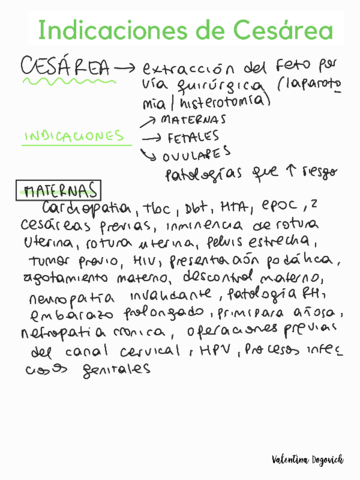 Indicaciones de Cesárea
CESÁREA → extracción del feto por
vía quirúrgica (laparoto
mia/histerotomía)
INDICACIONES → MATERNAS
→ FETALES
→ OVULARES
Patologías que ↑ riesgo
MATERNAS
Cardiopatia, TBC, Dbt, HTA, EPOC, 2
cesáreas previas, inminencia de rotura
uterina, rotura uterina, pelvis estrecha,
tumor previo, HIV, presentación podálica,
agotamiento materno, descontrol materno,
neuropatía invalidante, patología RH,
embarazo prolongado, primípara añosa,
nefropatia cronica, operaciones previas
del canal cervical, HPV, procesos infec
ciosos genitales
Valentina Dogovich